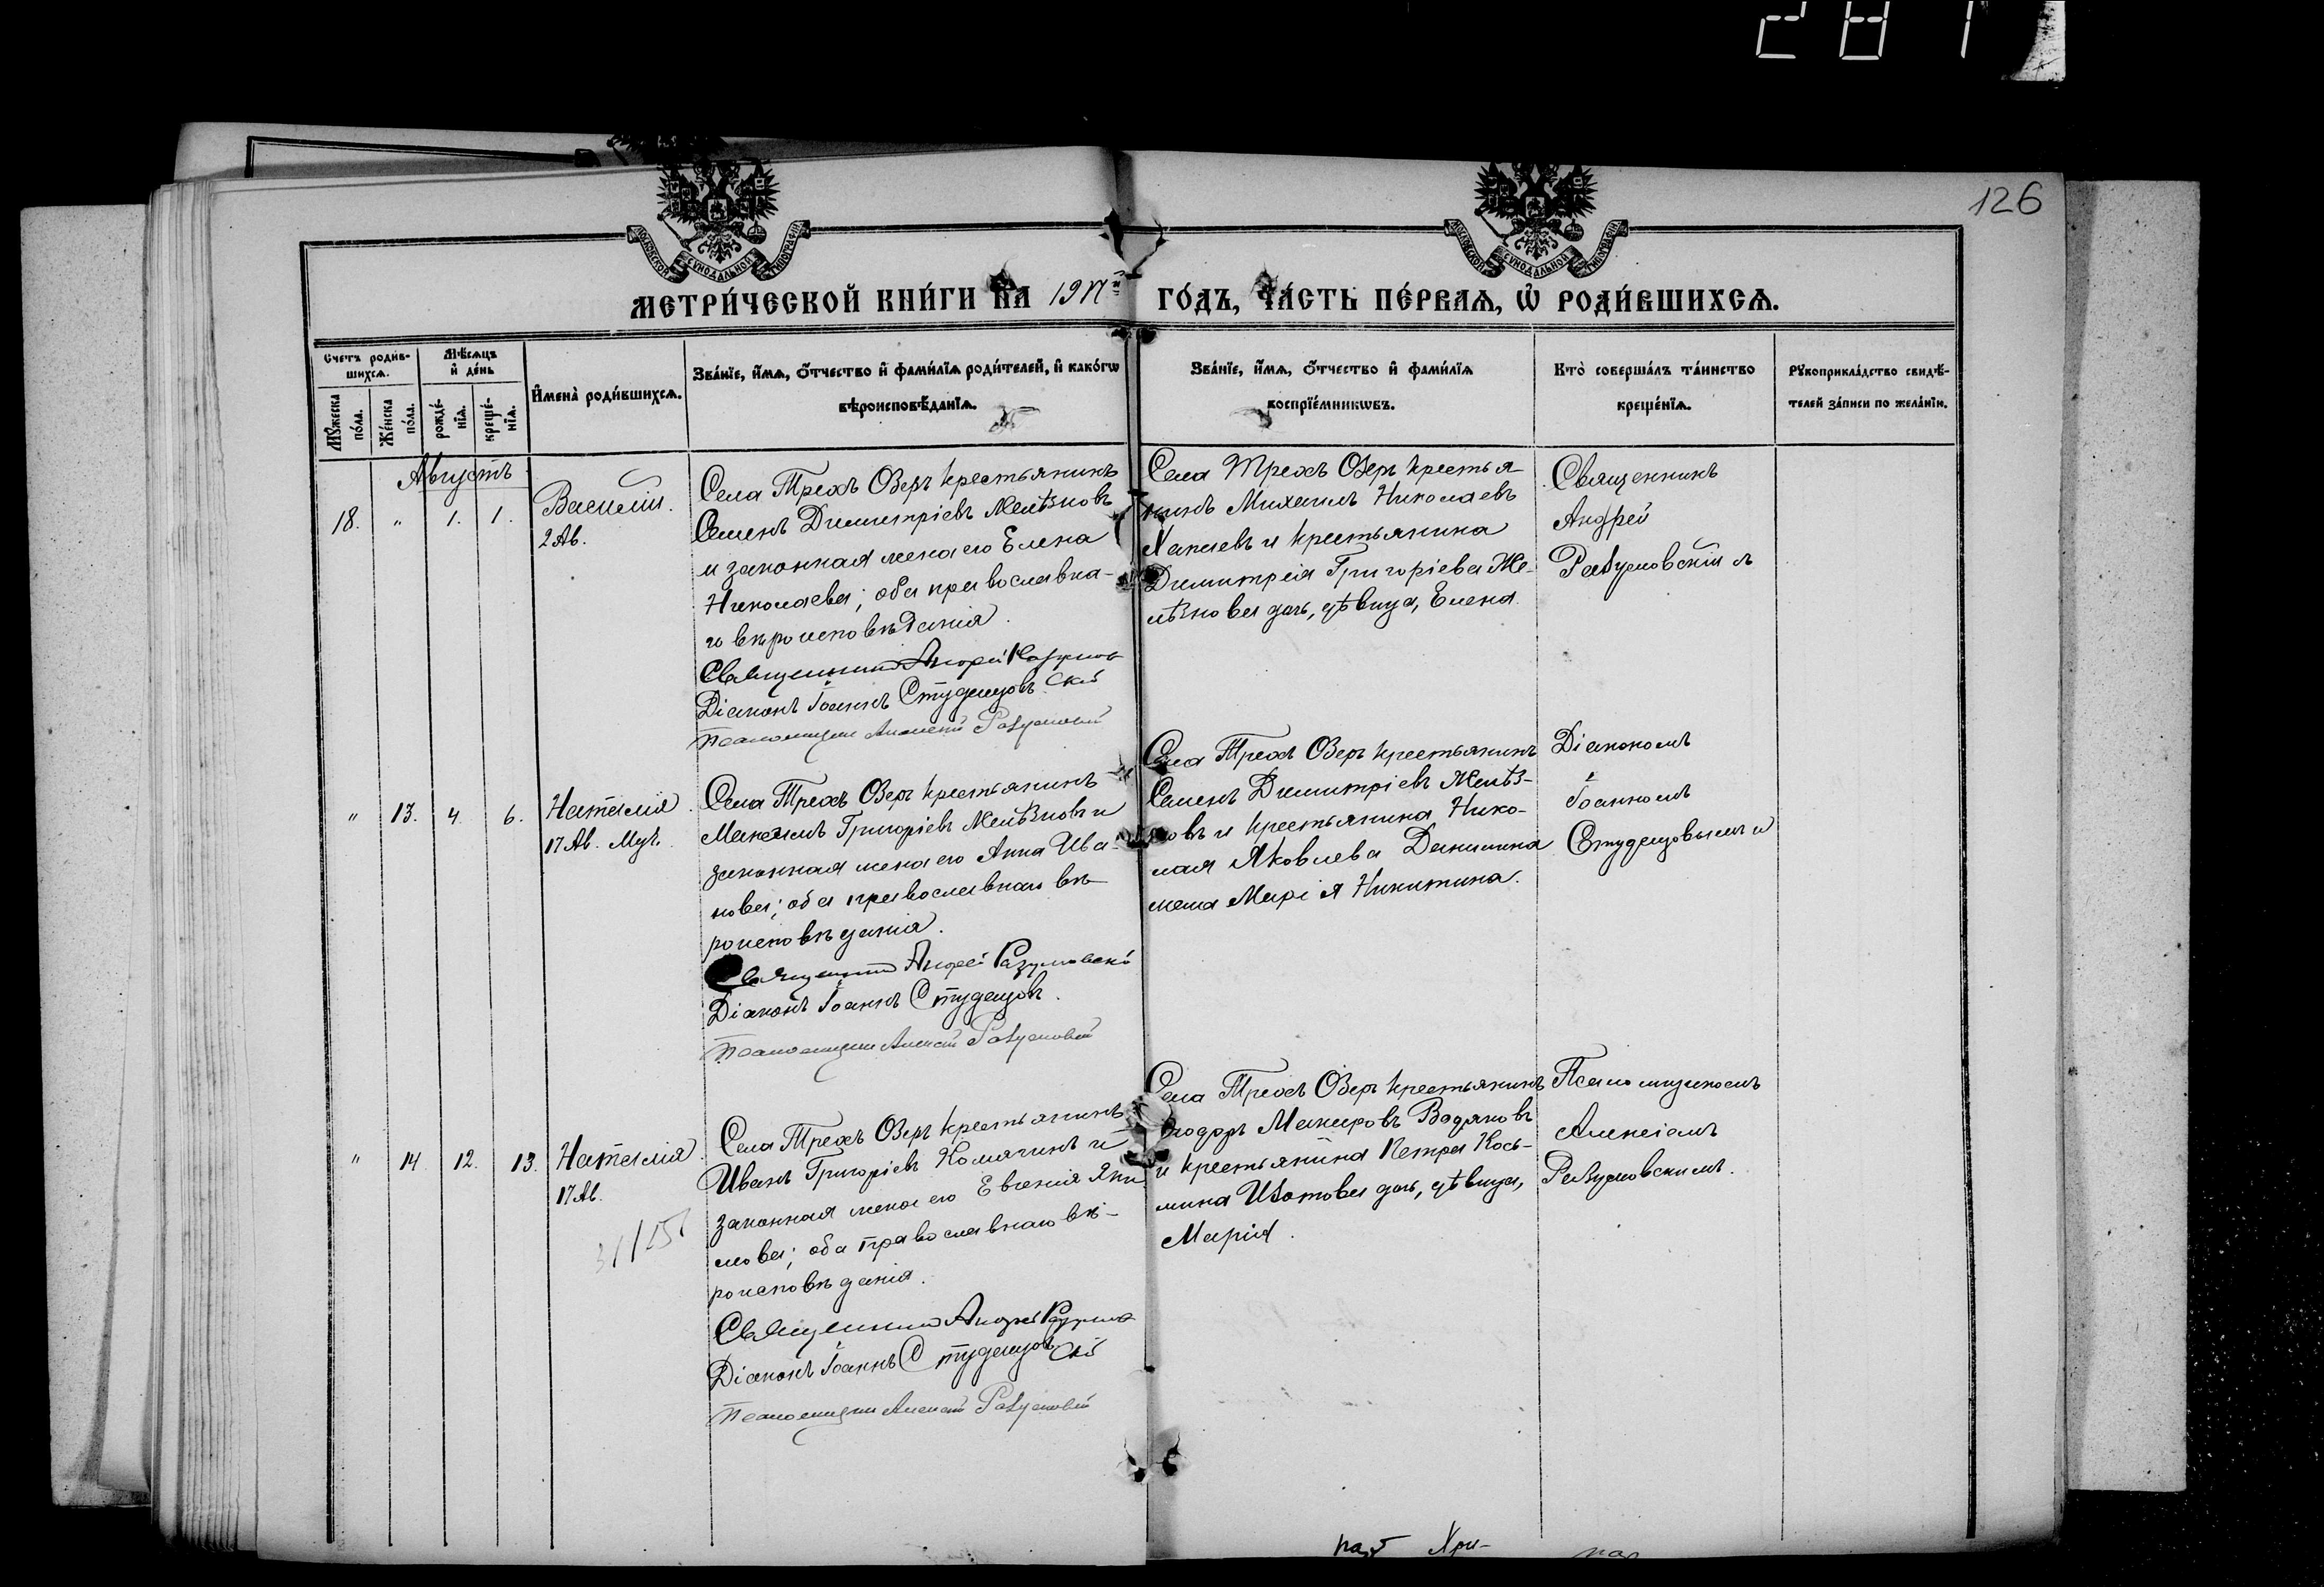 281
126
МОСКОВСКОЙ СѴНОДАЛЬНОЙ ТИПОГРАФІИ
МОСКОВСКОЙ СѴНОДАЛЬНОЙ ТИПОГРАФІИ
МЕТРИ́ЧЕСКОЙ КНИ́ГИ НА 19 ГО́ДЪ, ЧА́СТЬ ПЕ́РВАѦ, Ѡ РОДИ́ВШИХСѦ.
Счетъ роди́в-
шихсѧ.
Мꙋ́жеска по́ла.
Же́нска по́ла.
Мѣ́сѧцъ и де́нь
рожде́-
нїѧ.
креще́-
нїѧ.
Имена̀ роди́вшихсѧ.
Зва́нїе, и́мѧ, о́тчество и фами́лїѧ роди́телей, и како́гѡ
вѣроисповѣ́данїѧ.
Зва́нїе, и́мѧ, о́тчество и фами́лїѧ
воспрїе́мникѡвъ.
Кто̀ соверша́лъ та́инство
креще́нїѧ.
Рꙋкоприкла́дство свидѣ́-
телей за́писи по жела́нїю.
Августъ
18. " 1. 1.
Василій.
2 Ав.
Села Трехъ Озеръ крестьянинъ
Семенъ Димитріевъ Желѣзновъ
и законная жена его Елена
Николаева; оба православна-
го вѣроисповѣданія.
Священникъ Андрей Разумов
скій
Діаконъ Іоаннъ Студенцовъ.
Псаломщикъ Алексій Разумовскій
Села Трехъ Озеръ крестья-
нинъ Михаилъ Николаевъ
и крестьянина
Димитрія Григоріева Же-
лѣзнова дочь, дѣвица, Елена.
Священникъ
Андрей
Разумовскій
" 13. 4. 6.
Наталія.
17 Ав. Муч.
Села Трехъ Озеръ крестьянинъ
Григоріевъ Желѣзновъ и
законная жена его Анна Ива-
нова; оба православнаго вѣ-
роисповѣданія.
Священникъ Андрей Разумовскій
Діаконъ Іоаннъ Студенцовъ.
Псаломщикъ Алексій Разумовскій
Села Трехъ Озеръ крестьянинъ
Семенъ Димитріевъ Желѣз-
новъ и крестьянина Нико-
лая Яковлева
жена Марія Никитина.
Діакономъ
Іоанномъ
Студенцовымъ
" 14 12. 13.
Наталія.
17 Ав.
Села Трехъ Озеръ крестьянинъ
Иванъ Григоріевъ и
законная жена его Евгенія Яки
мова; оба православнаго вѣ-
роисповѣданія.
Священникъ Андрей Разумов
скій
Діаконъ Іоаннъ Студенцовъ
Псаломщикъ Алексій Разумовскій
Села Трехъ Озеръ крестьянинъ
Ѳеодоръ Водяковъ
и крестьянина Петра Кось-
мина Изотова дочь, дѣвица,
Марія.
Псаломщикомъ
Алексіемъ
Разумовскимъ.